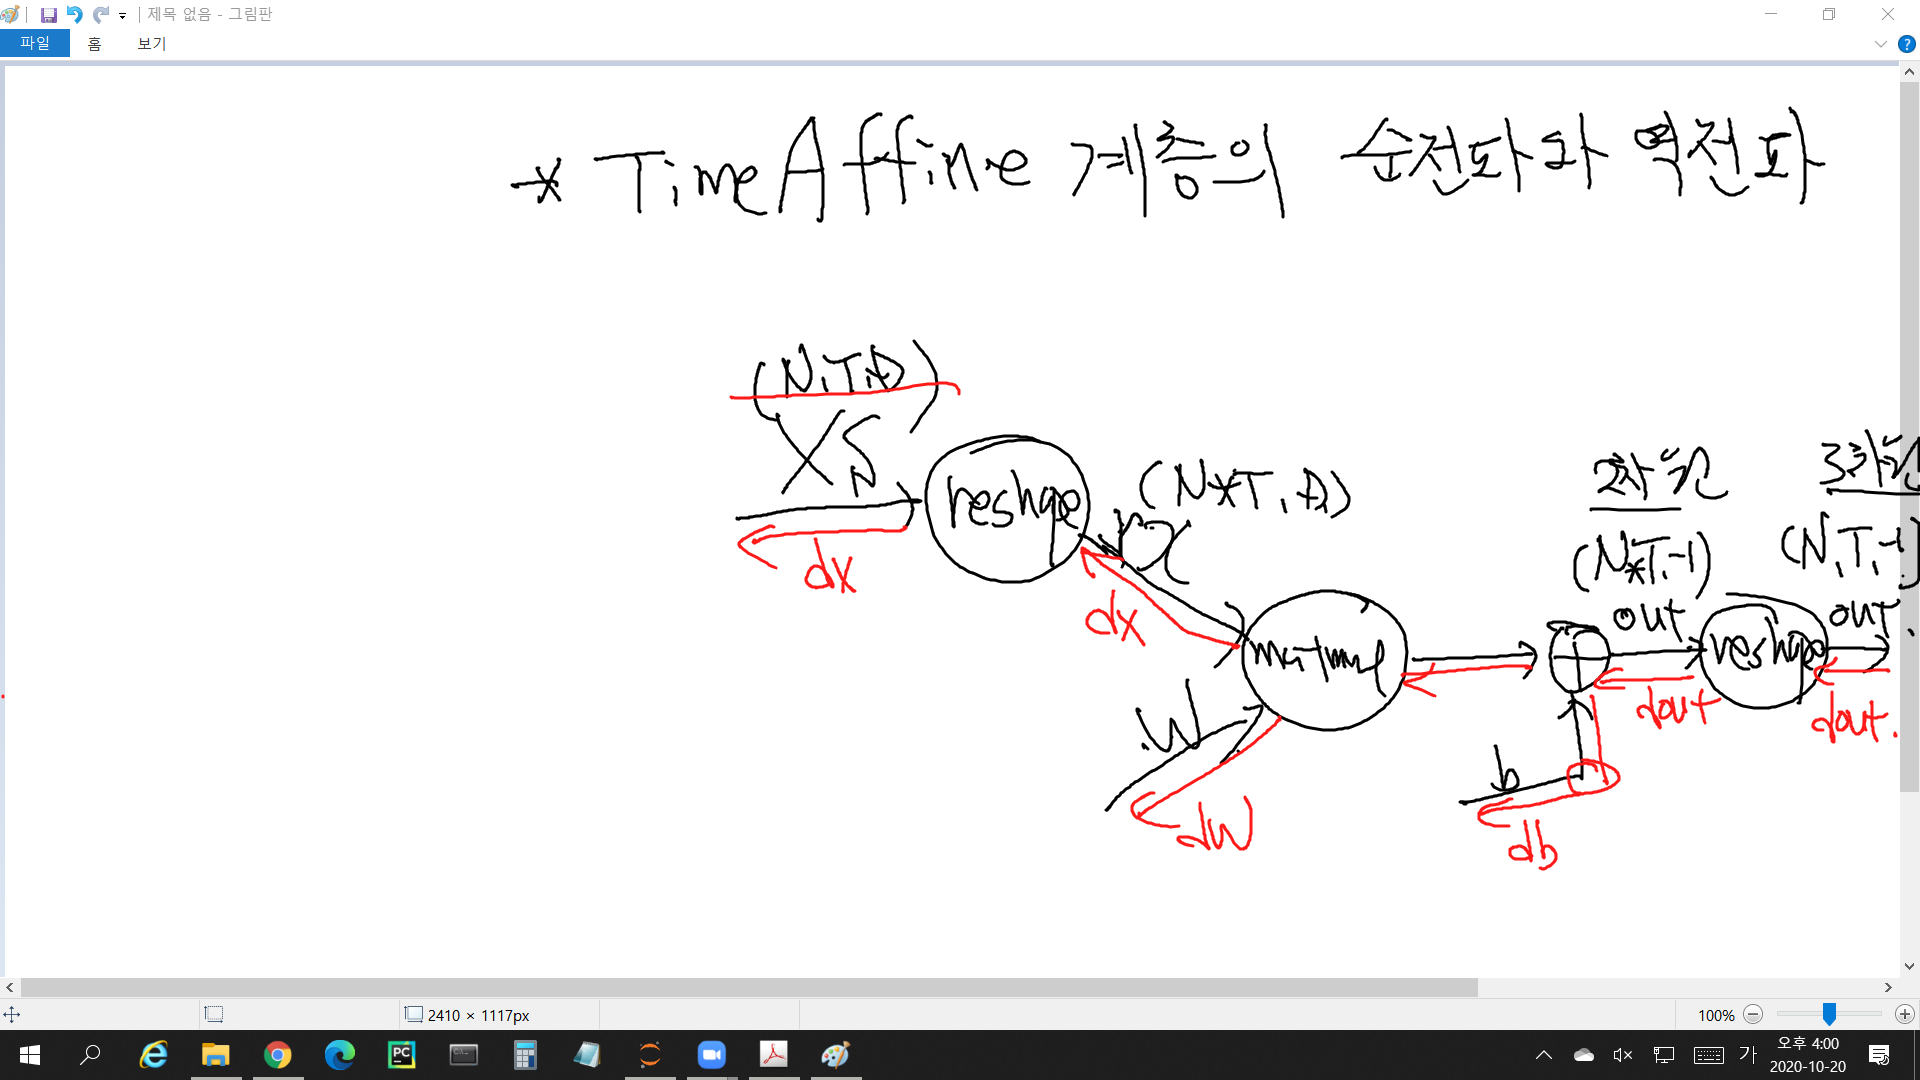 제목 없음 - 그림판
파일 홈 보기
* TimeAffine 계층의 순전파와 역전파
(N,T,D)
XS
reshape
dx
(N*T, D)
x
dx
matmul
W
dW
b
db
2차원
(N*T,-1)
out
dout
reshape
3차원
(N,T,-1)
out
dout.
2410 × 1117px
100%
가
오후 4:00
2020-10-20